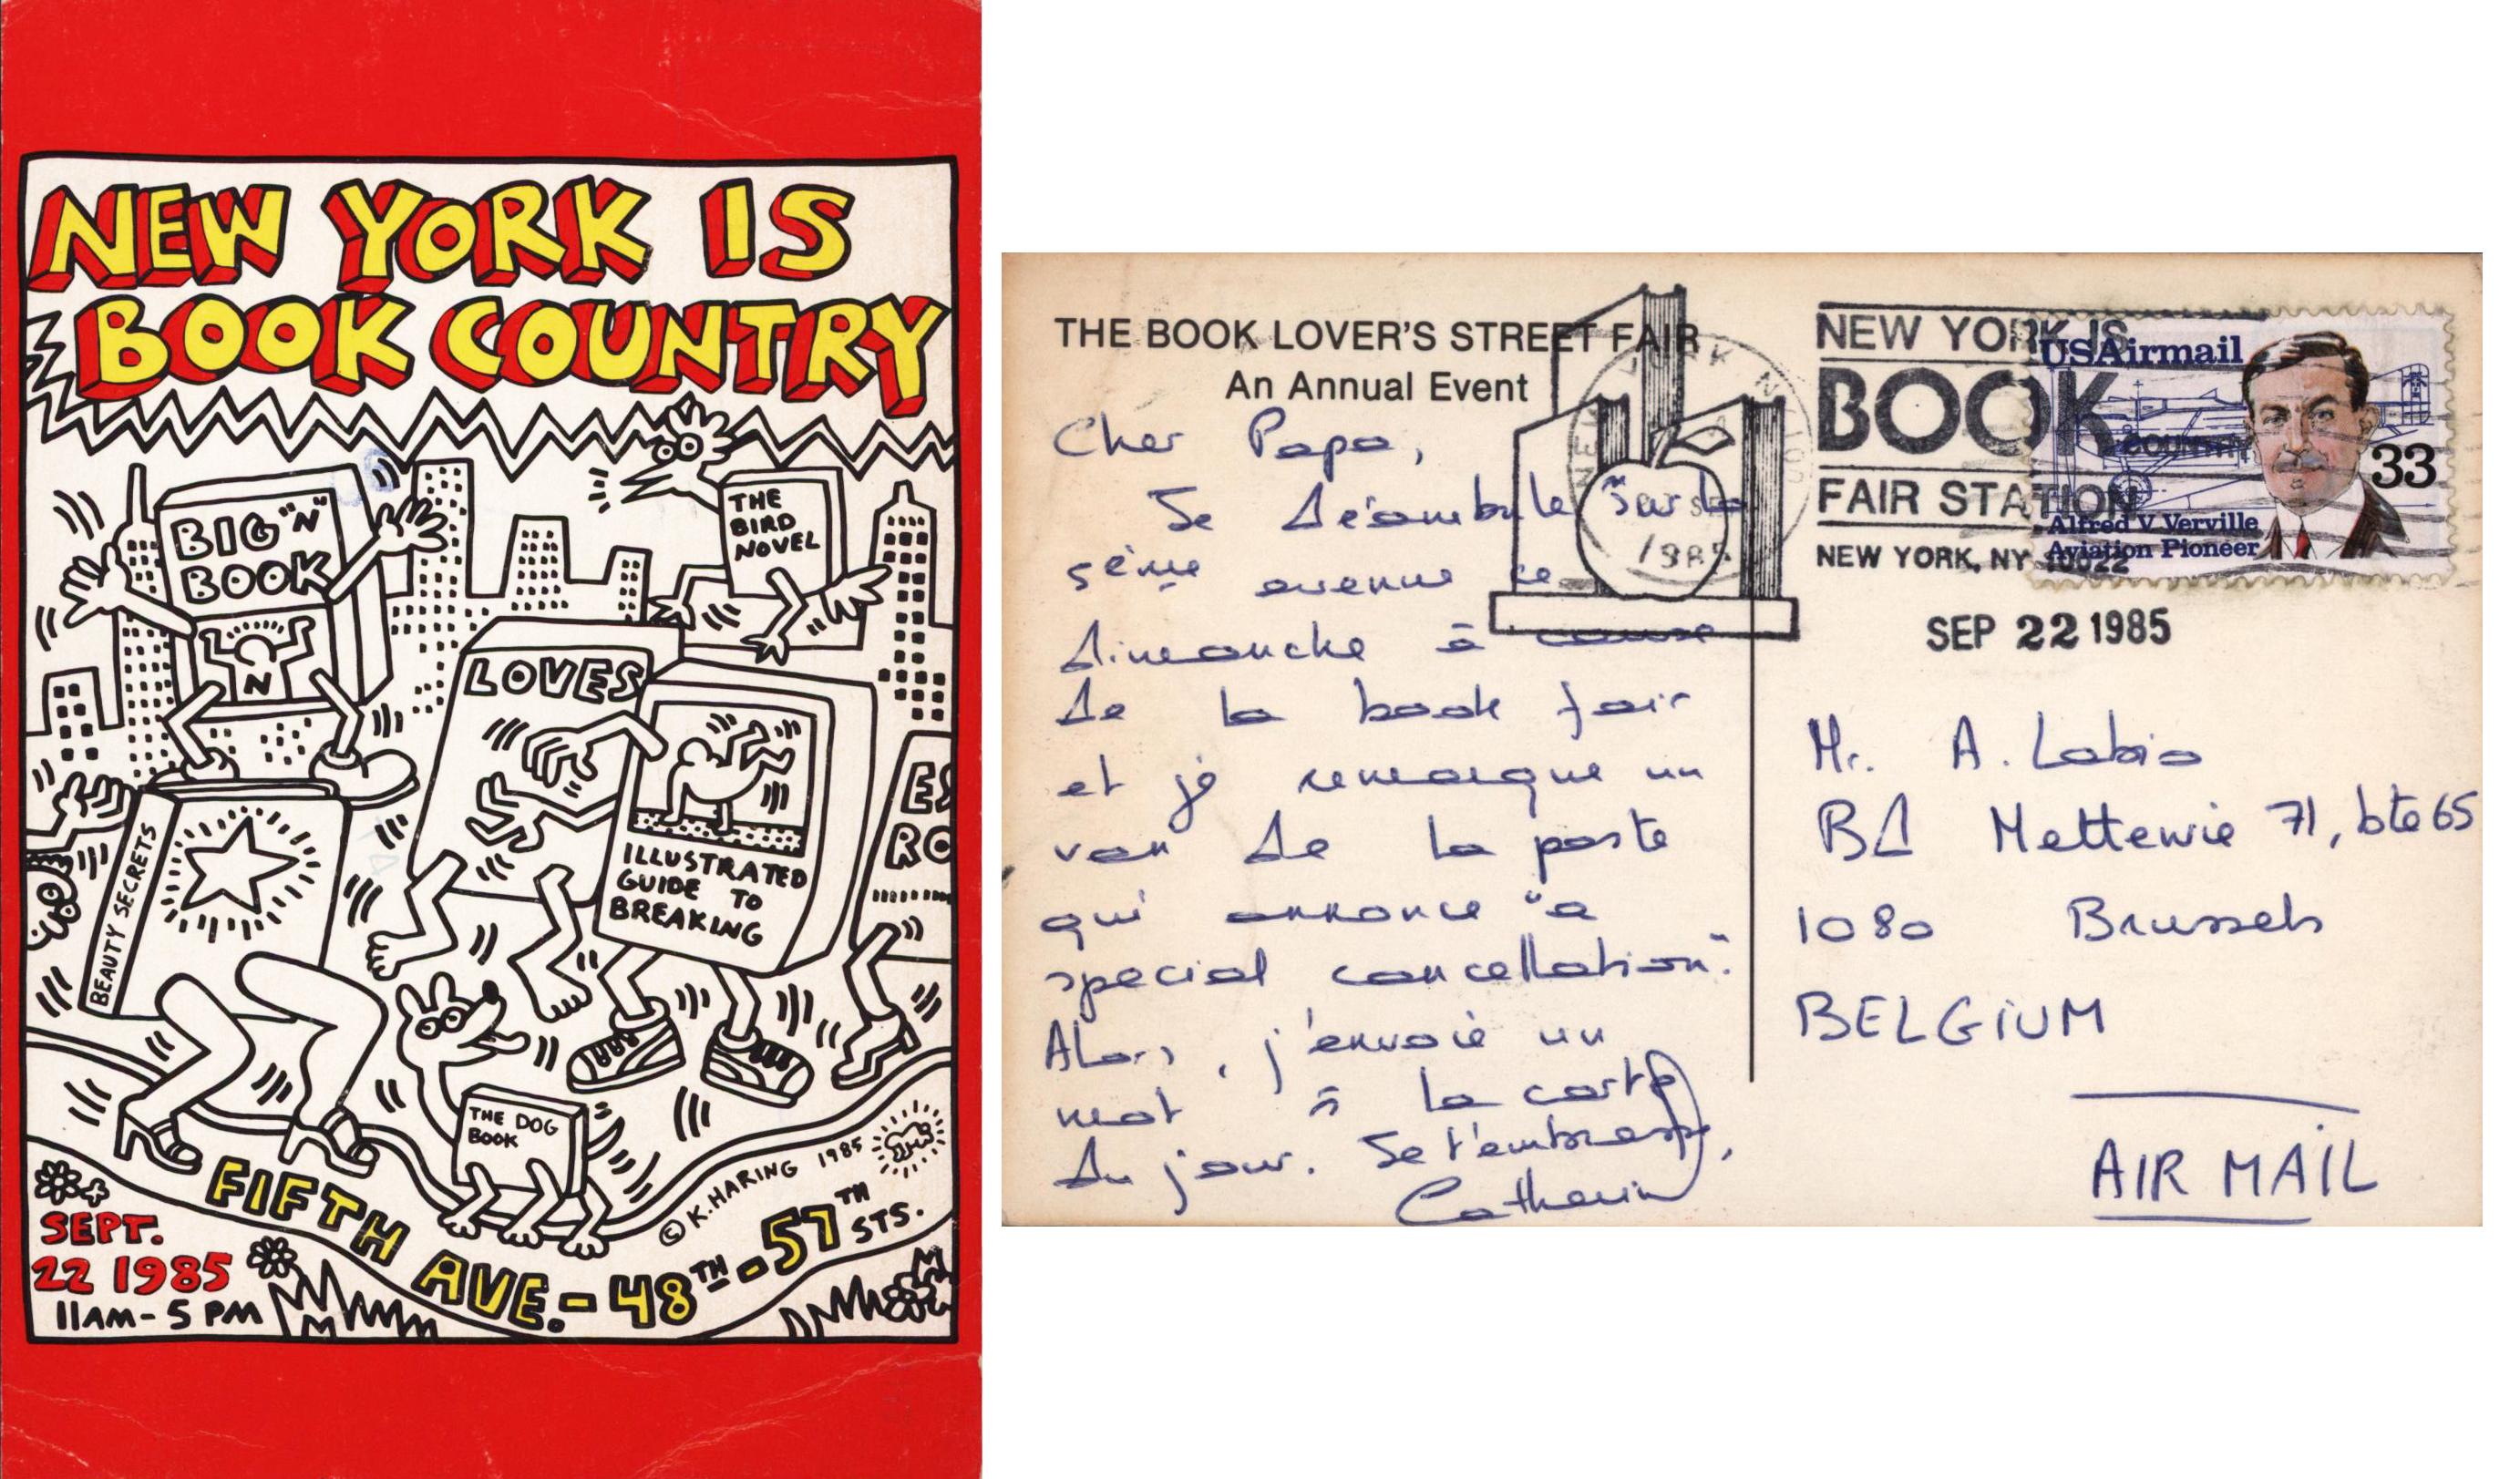 NEW YORK IS
BOOK COUNTRY
BIG "N"
BOOK
N
THE
BIRD
NOVEL
LOVES
ILLUSTRATED
GUIDE TO
BREAKING
ES
RO
BEAUTY SECRETS
THE DOG
BOOK
© K. HARING 1985
FIFTH AVE. - 48TH - 57TH STS.
SEPT.
22 1985
11AM - 5 PM
THE BOOK LOVER'S STREET FAIR
An Annual Event
Cher Papa,
Je déambule sur la
5ème avenue ce
dimanche à cause
de la book fair
et je remarque un
van de la poste
qui annonce "a
special cancellation".
Alors, j'envoie un
mot à la carte
du jour. Je t'embrasse,
Catherine
NEW YORK N
1985
NEW YORK IS
BOOK
COUNTRY
FAIR STATION
NEW YORK, NY 10022
SEP 22 1985
USAirmail
33
Alfred V. Verville
Aviation Pioneer
Mr. A. Labio
Bd Mettewie 71, bte 65
1080 Brussels
BELGIUM
AIR MAIL